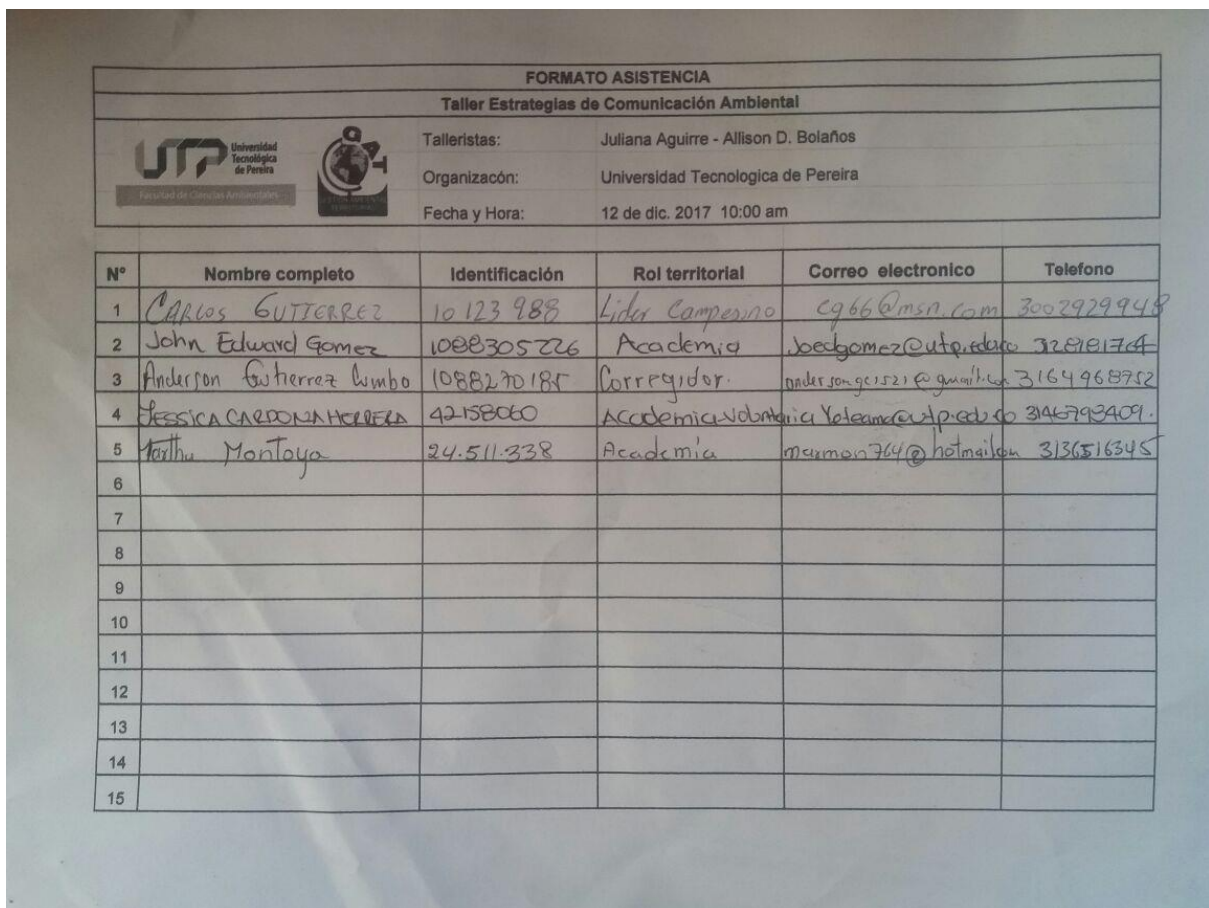 FORMATO ASISTENCIA
Taller Estrategias de Comunicación Ambiental
UTP Universidad Tecnológica de Pereira
Facultad de Ciencias Ambientales
GAT
Talleristas: Juliana Aguirre - Allison D. Bolaños
Organizacón: Universidad Tecnologica de Pereira
Fecha y Hora: 12 de dic. 2017 10:00 am
N° Nombre completo Identificación Rol territorial Correo electronico Telefono
1 CARLOS GUTIERREZ 10 123 988 Lider Campesino cg66@msn.com 3002929948
2 John Edward Gomez 1088305226 Academia Joedgomez@utp.edu.co 328181764
3 Anderson Gutierrez 1088270185 Corregidor. 3164968952
4 JESSICA CARDONA HERRERA 42158060 Academia-Voluntaria Yoteamo@utp.edu.co 3146793409.
5 Martha Montoya 24.511.338 Academia marmon764@hotmail.com 3136516345
6
7
8
9
10
11
12
13
14
15